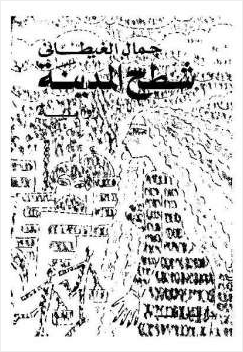 جمال الغيطاني
شطح المدينة